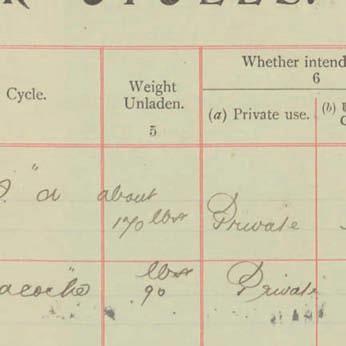 CYCLES.
Cycle.
Weight
Unladen.
5
Whether intend
6
(a) Private use.
(b)
about
170 lbs
Private
lbs
90
Private